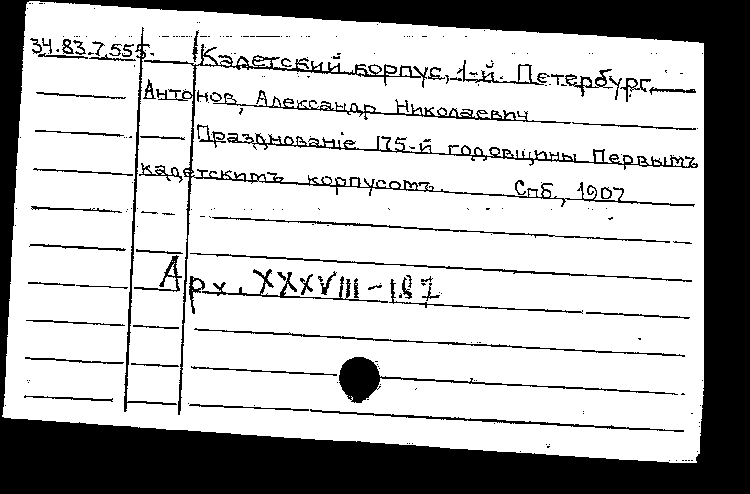 34.83.7.555. Кадетский корпус, 1-й. Петербург.
Антонов, Александр Николаевич
Празднованіе 175-й годовщины Первымъ
кадетскимъ корпусомъ. Спб., 1907
Арх. XXXVIII-187